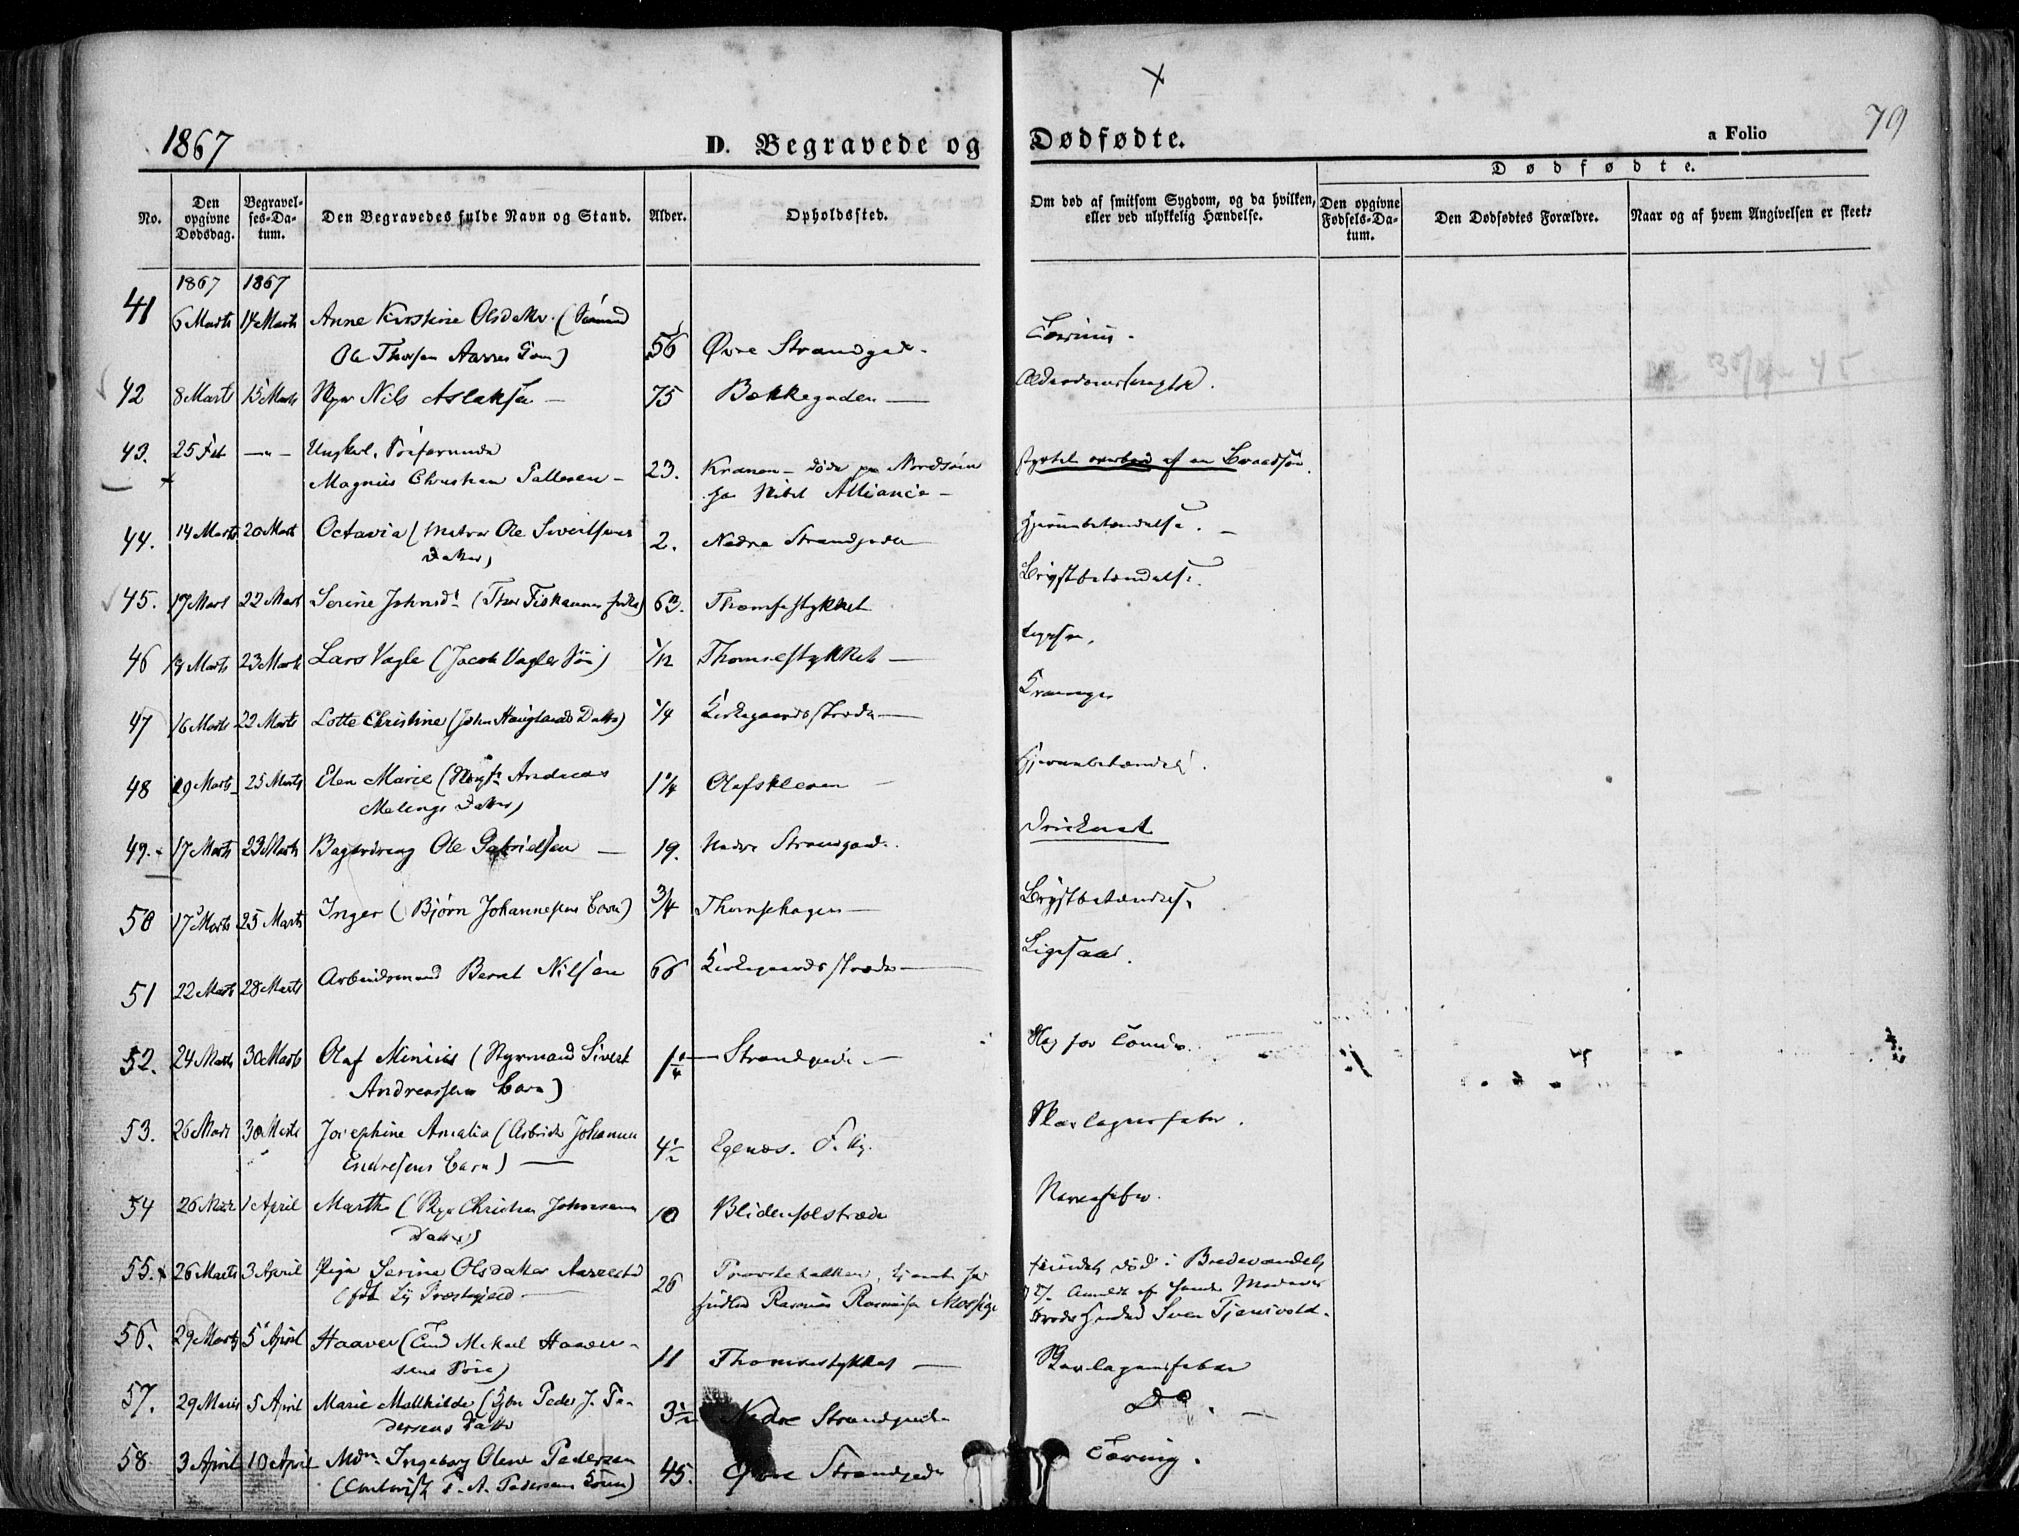 1867
D. Begravede og Dødfødte.
a Folio 79
No.
Den opgivne Dødsdag.
Begravelses-Datum.
Den Begravedes fulde Navn og Stand.
Alder.
Opholdssted.
Om død af smitsom Sygdom, og da hvilken, eller ved ulykkelig Hændelse.
Dødfødte.
Den opgivne Fødsels-Datum.
Den Dødfødtes Forældre.
Naar og af hvem Angivelsen er skeet:
1867 1867
41 6 Marts 14 Marts Anne Kirstine Olsdatter (
Ole Thorsen Aarres ) 56 Øvre Strandgade
42 8 Marts 15 Marts Nils Aslaksen 75 Bakkegaden Alderdomssvaghed.
43. 25 Feb —"— Ungkarl,
Magnus Christian Pallesen 23. Kranen døde paa Nordsøen styrtet overbord af en Braadsø.
Skibet Alliance
44. 14 Marts 20 Marts Octavia ( Ole Sivertsens
Datter) 2. Nedre Strandgade Hjernebetændelse.
45. 17 Mart 22 Mart Serine Johnsd. ( ) 63. Thomsestykket Brystbetændelse.
46 19 Marts 23 Marts Lars Vagle (Jacob Vagles Søn) 1/12 Thomsestykket
47 16 Marts 22 Marts Lotte Christine (John Hauglands Datter) 1/4 Kirkegaardsstrædet Krampe
48 19 Marts 25 Marts Elen Marie ( Andreas
Malings Datter) 1 1/4 Olafskleven Hjernebetændelse.
49. 17 Marts 23 Marts Bagerdreng Ole Gabrielsen 19. Nedre Strandgade. Druknet
50 17 Marts 25 Marts Inger (Bjørn Johannesens Barn) 3/4 Thomsehagen Brystbetændelse
51 22 Marts 28 Marts Arbeidsmand Bernt Nilsen 66 Kirkegaardsstrædet Ligesaa.
52. 24 Marts 30 Marts Olaf Minius (Styrmand Sivert
Andreassens Barn) 1 1/4 Strandgade Slag for Tænder.
53. 26 Mart 30 Marts Josephine Amalia (Arbeider Johannes
Endresens Barn) 4 1/2 Egenæs. Skarlagensfeber.
54 26 Mar 1 April Marthe ( Christian Johnsens
Datter) 10 Blidensolstræde Nervefeber.
55. 26 Marts 3 April Pige Serine Olsdatter Aarrestad
(født Præstegjeld 26 tjente hos fundet død i Bredevandet,
Rasmus Rasmussen Mossige af hendes
Sven Tjensvold.
56. 29 Marts 5 April Haaver ( Mikael Haaver-
sens Søn) 11 Thomsestykket Skarlagensfeber
57. 29 Marts 5 April Marie Mathilde ( Peder J. Pe-
dersens Datter 3 1/2 Nedre Strandgade Do.
58 3 April 10 April Mdm Ingeborg Olene Pedersen
( P. A. Pedersens Kone) 45. Øvre Strandgade Tæring.